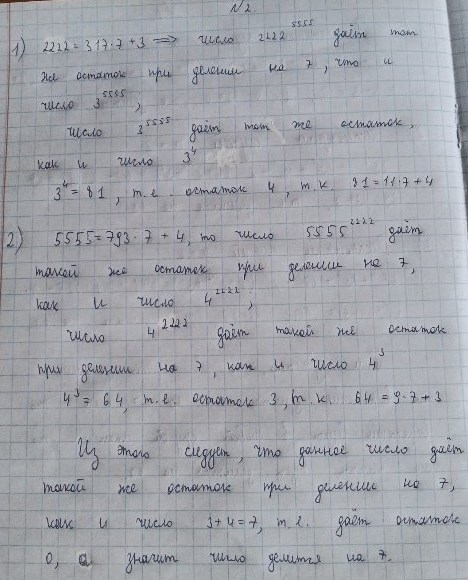 №2
1) 2222 = 317·7 + 3 ⟹ число 2222^5555 даёт тот
же остаток при делении на 7, что и
число 3^5555;
число 3^5555 даёт тот же остаток,
как и число 3^4
3^4 = 81, т.е. остаток 4, т.к. 81 = 11·7 + 4
2) 5555 = 793·7 + 4, то число 5555^2222 даёт
такой же остаток при делении на 7,
как и число 4^2222;
число 4^2222 даёт такой же остаток
при делении на 7, как и число 4^3
4^3 = 64, т.е. остаток 3, т.к. 64 = 9·7 + 3
Из этого следует, что данное число даёт
такой же остаток при делении на 7,
как и число 3+4=7, т.е. даёт остаток
0, а значит число делится на 7.